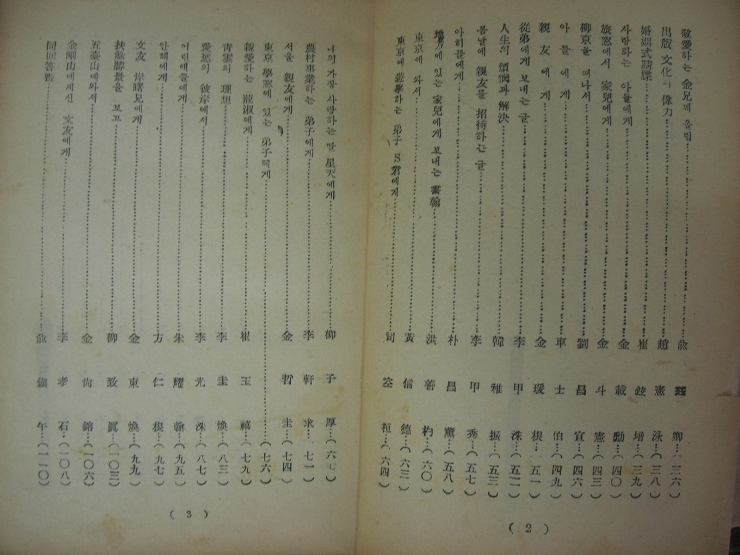 敬愛하는 金兄께 올림……兪 鎭 卿…(三六)
出版 文化의 偉力……趙 憲 泳…(三八)
婚姻式 請牒……崔 培…(三九)
사랑하는 아들에게……金 載 勳…(四〇)
旅窓에서 家兒에게……金 斗 憲…(四三)
柳京을 떠나서……劉 昌 宣…(四六)
아들에게……車 士 伯…(四九)
親友에게……金 瑗 根…(五一)
從弟에게 보내는 글……李 甲 洙…(五二)
人生의 煩悶과 解決……韓 雅 振…(五三)
봄날에 親友를 招待하는 글……李 甲 秀…(五七)
아히들에게……朴 昌 薰…(五八)
地方에 있는 家兒에게 보내는 書翰……洪 善 杓…(六〇)
東京에 와서……黃 信 德…(六三)
東京에 遊學하는 弟子 S君에게……桓…(六四)
(2)
너의 가장 사랑하는 딸 星天에게……柳 子 厚…(六七)
農村事業하는 弟子에게……李 軒 求…(七一)
서울 親友에게……金 哲 圭…(七四)
東京 學窓에 있는 弟子에게……(七六)
親愛하는 淑에게……崔 玉 禧…(七九)
靑雲의 理想……李 圭 煥…(八三)
愛慾의 彼岸에서……李 光 洙…(八七)
어린애들에게……朱 耀 翰…(九五)
안해에게……方 仁 根…(九七)
文友 岸曙兄에게……金 東 煥…(九九)
扶餘勝景을 보고……柳 致 眞…(一〇三)
五臺山에 와서……金 尙 鎔…(一〇六)
金剛山에게신 文友에게……李 孝 石…(一〇八)
問回答狀……兪 鎭 午…(一一〇)
(3)